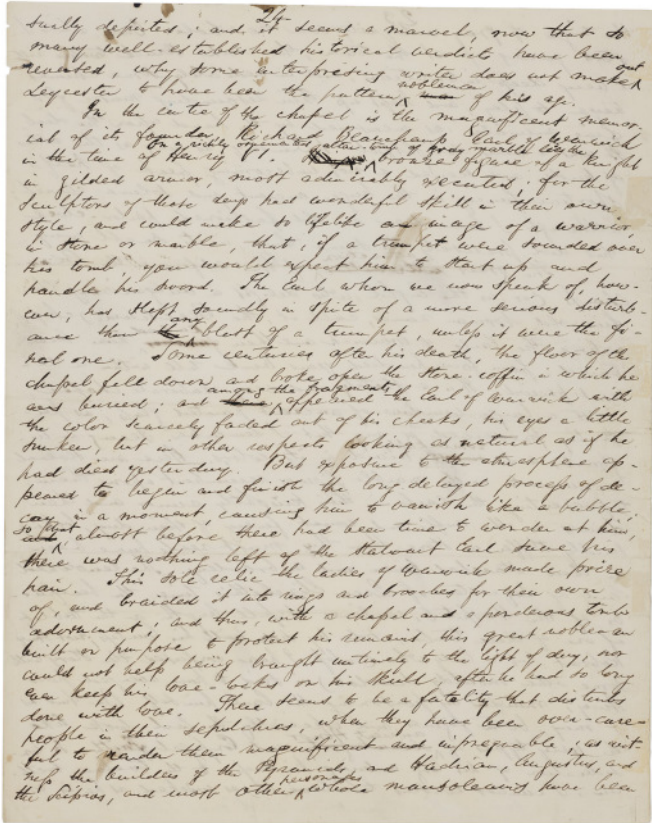 24
sually depicted; and it seems a marvel, now that so
many well-established historical verdicts have been
reversed, why some enterprising writer does not make out
Leycester to have been the pattern nobleman of his age.
In the centre of the chapel is the magnificent memor-
ial of its founder, Richard Beauchamp, Earl of Warwick
in the time of Henry VI. On a richly ornamented altar-tomb of gray marble lies the bronze figure of a knight
in gilded armor, most admirably executed; for the
sculptors of those days had wonderful skill in their own
style, and could make so lifelike an image of a warrior,
in stone or marble, that, if a trumpet were sounded over
his tomb, you would expect him to start up and
handle his sword. The Earl whom we now speak of, how-
ever, has slept soundly in spite of a more serious disturb-
ance than any blast of a trumpet, unless it were the fi-
nal one. Some centuries after his death, the floor of the
chapel fell down and broke open the stone-coffin in which he
was buried; and among the fragments appeared the Earl of Warwick with
the color scarcely faded out of his cheeks, his eyes a little
sunken, but in other respects looking as natural as if he
had died yesterday. But exposure to the atmosphere ap-
peared to begin and finish the long delayed process of de-
cay in a moment, causing him to vanish like a bubble;
so that almost before there had been time to wonder at him,
there was nothing left of the stalwart Earl save his
hair. This sole relic the ladies of Warwick made prize
of, and braided it into rings and brooches for their own
adornment; and thus, with a chapel and a ponderous tomb
built on purpose to protect his remains, this great nobleman
could not help being brought untimely to the light of day, nor
even keep his love-locks on his skull, after he had so long
done with love. There seems to be a fatality that disturbs
people in their sepulchres, when they have been over-care-
ful to render them magnificent and impregnable; as wit-
ness the builders of the Pyramids, and Hadrian, Augustus, and
the Scipios, and most other personages whose mausoleums have been